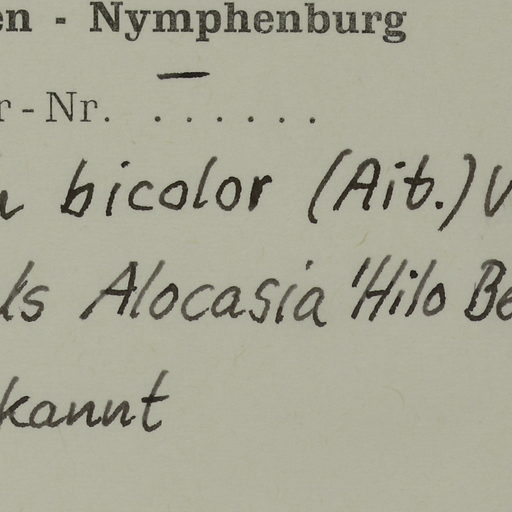 en - Nymphenburg
r-Nr. — ......
bicolor (Ait.) V
ls Alocasia 'Hilo Be
kannt